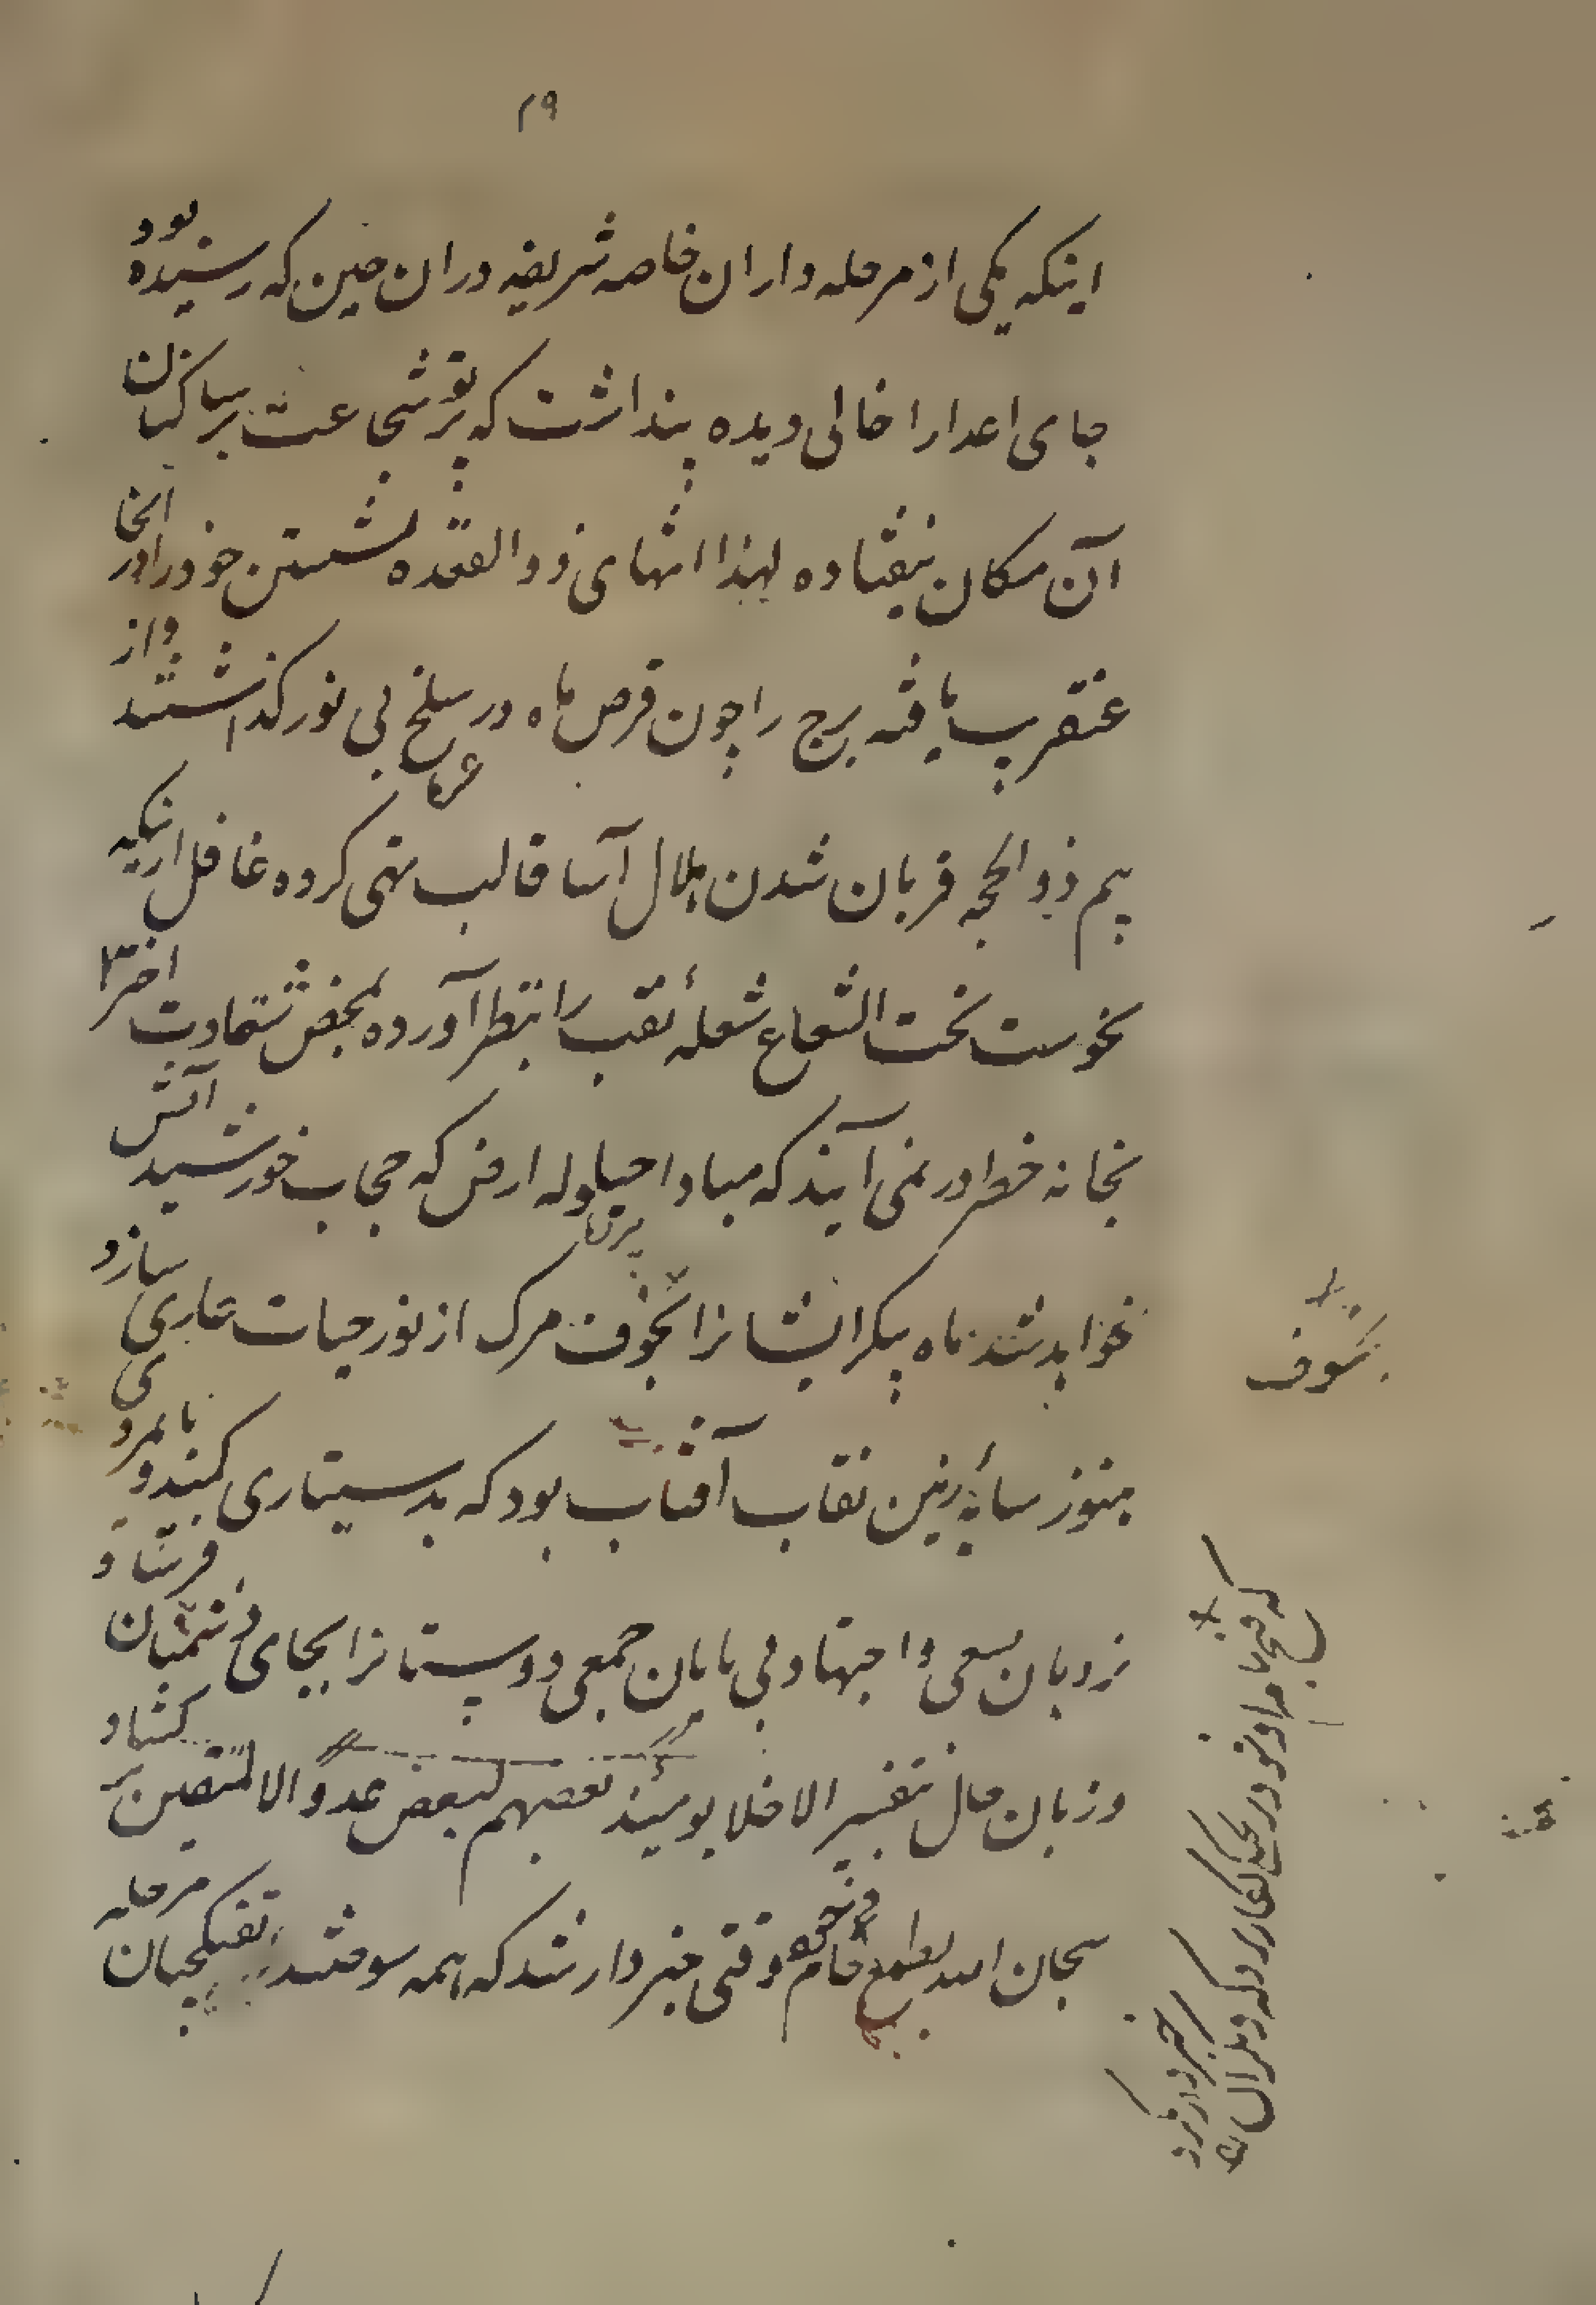 ۲۹
اینکه یکی از مرحله داران خاصه شریفه دران حین که رسیده بود
جای اعدا را خالی دیده پنداشت که پرتو شجاعت بر ساکنان
آن مکان نیفتاده لهذا انتهای ذوالقعده نشستن خود را در انجا
عنقریب یافته برج را چون قرص ماه در سلخ بی نور گذاشتند و از
بیم غره ذوالحجه قربان شدن هلال آسا قالب تهی کرده غافل ازینکه
نحوست تحت الشعاع شعله نقب را بنظر آورده بمحض شقاوت اختر
بخانه خطر در نمی آیند که مبادا حیلوله ارض که حجاب خورشید آتش
نخواهد شد ماه پیکر ایشانرا بخوف مرگ از نور حیات عاری سازد
بکسوف
هنوز سایه زمین نقاب آفتاب بود که بدستیاری کمند و پایمردی
نردبان سعی و اجتهاد بی پایان جمعی دوستانرا بجای دشمنان فرستاد
و زبان حال بتفسیر الاخلا یومئذ بعضهم لبعض عدو الا المتقین بر کشاد
سبحان الله بطمع خام وقتی خبردار شد که همه سوختند تفنگچیان مرحله